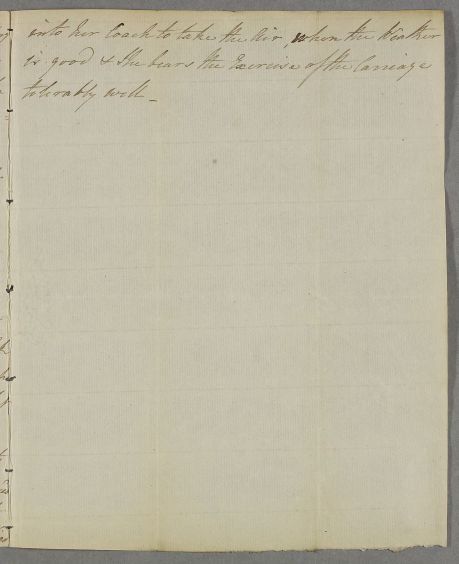 into her Coach to take the Air, when the Weather
is good & She bears the Exercise of the Carriage
tolerably well _